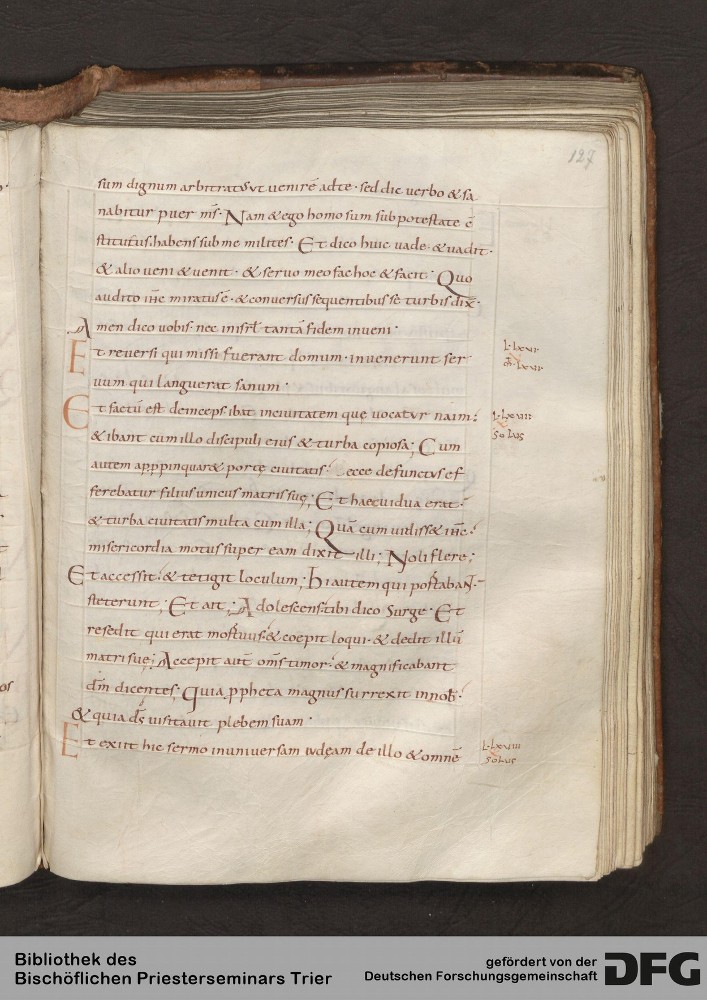 127
sum dignum arbitratus ut uenirē ad te · sed dic uerbo & sa
nabitur puer m̄s · Nam & ego homo sum sub potestate cō
stitutus · habens sub me milites · Et dico huic uade · & uadit ·
& alio ueni & uenit · & seruo meo fac hoc & facit · Quo
audito ihc miratus ē · & conuersus sequentibus se turbis dix̄ ·
Amen dico uobis · nec in isrl̄ tantā fidem inueni ·
Et reuersi qui missi fuerant domum · inuenerunt ser
uum qui languerat sanum ·
Et factū est deinceps ibat in ciuitatem quę uocatur naim :
& ibant cum illo discipuli eius & turba copiosa ; Cum
autem appropinquar& portę ciuitatis : ecce defunctus ef
ferebatur filius unicus matris suę ; Et haec uidua erat :
& turba ciuitatis multa cum illa ; Quā cum uidiss& ihc :
misericordia motus super eam dixit illi ; Noli flere ;
Et accessit : & tetigit loculum ; hi autem qui portabant
steterunt ; Et ait ; Adolescens · tibi dico Surge · Et
resedit qui erat mortuus : & coepit loqui · & dedit illū
matri suę ; Accepit aut̄ oms̄ timor : & magnificabant
dm̄ dicentes · Quia ppheta magnus surrexit in nob̄ :
& quia ds̄ uisitauit plebem suam ·
Et exiit hic sermo in uniuersam iudęam de illo & omnē
L · lxvi
L · lxvii
Solus
L · lxviii
Solus
Bibliothek des
Bischöflichen Priesterseminars Trier
gefördert von der
Deutschen Forschungsgemeinschaft
DFG